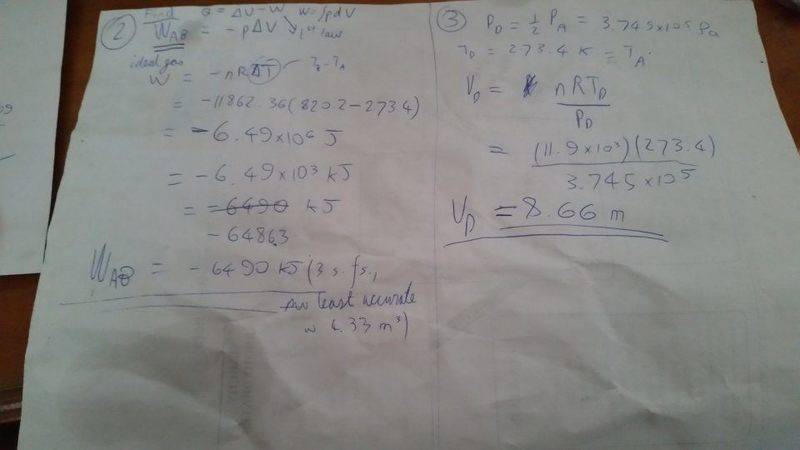 ② Find Q = ΔU - W W = ∫pdV
W_AB = -pΔV 1st law
ideal gas
W = -nRΔT T_B - T_A
= -11862.36(820.2-273.4)
= -6.49×10⁶ J
= -6.49×10³ kJ
= -6490 kJ
-6486.3
W_AB = -6490 kJ (3 s.fs.,
least accurate
6.33 m³)
③ P_D = ½ P_A = 3.745×10⁵ Pa
T_D = 273.4 K = T_A
V_D = nRT_D
P_D
= (11.9×10³)(273.4)
3.745×10⁵
V_D = 8.66 m